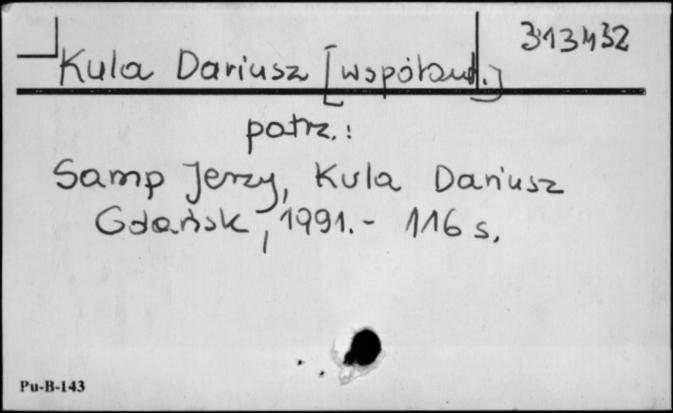 313432
Kula Dariusz [współaut.]
patrz.:
Samp Jerzy, Kula Dariusz
Gdańsk, 1991.- 116 s.
Pu-B-143